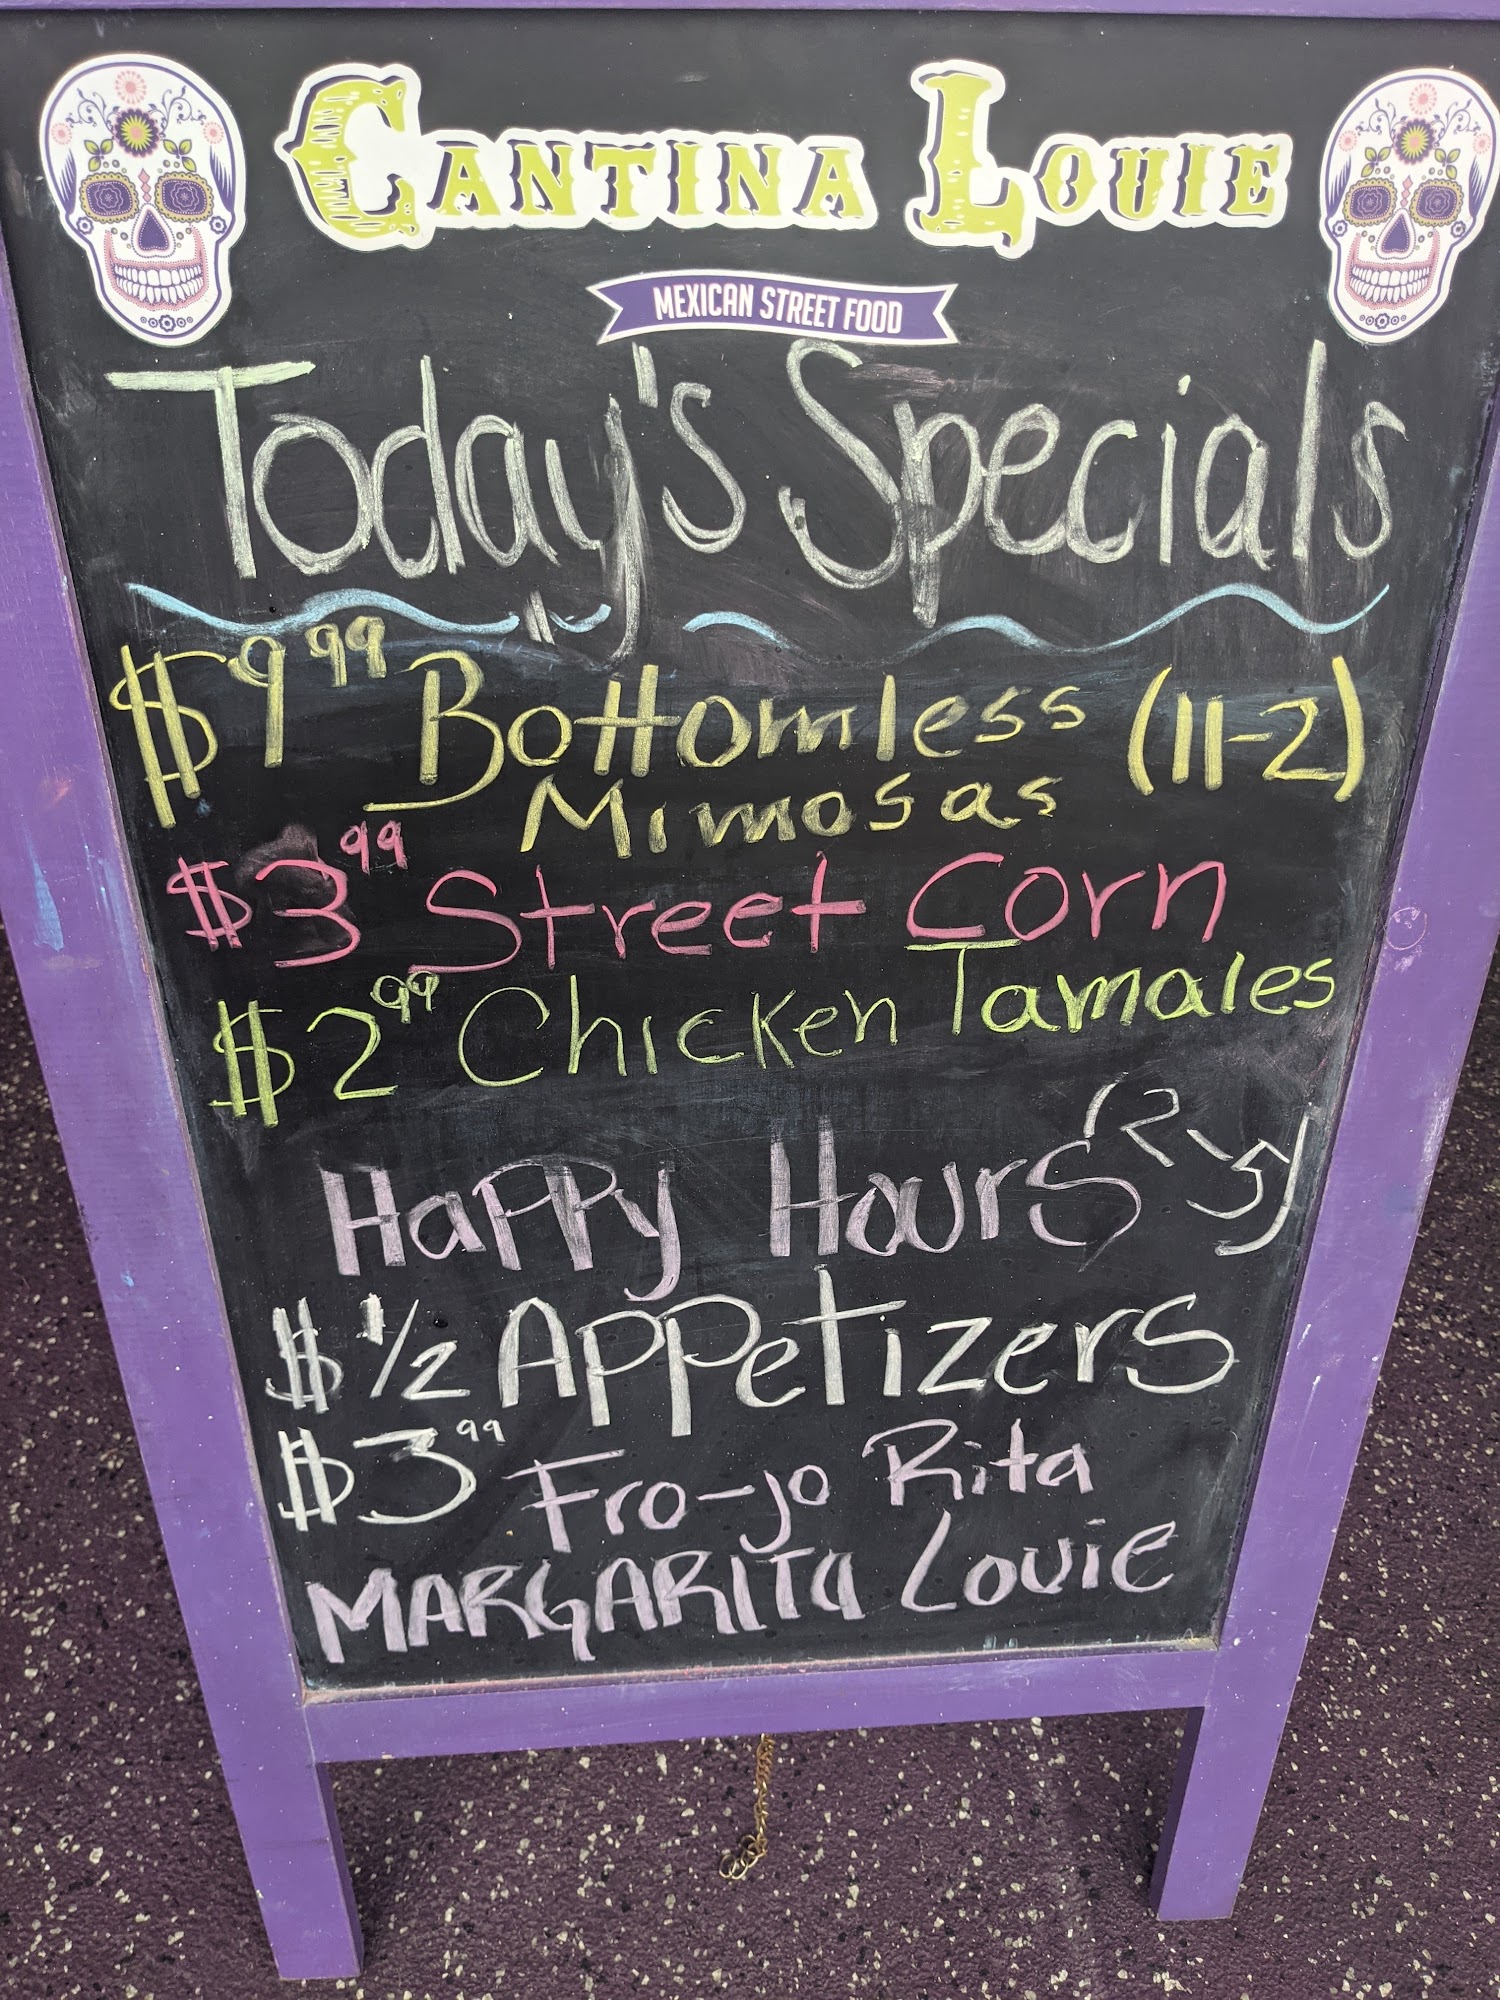 CANTINA LOUIE
MEXICAN STREET FOOD
Today's Specials
$9.99 Bottomless (11-2)
Mimosas
$3.99 Street Corn
$2.99 Chicken Tamales
Happy Hours (2-5)
$ 1/2 Appetizers
$3.99 Fro-jo Rita
MARGARITA Louie